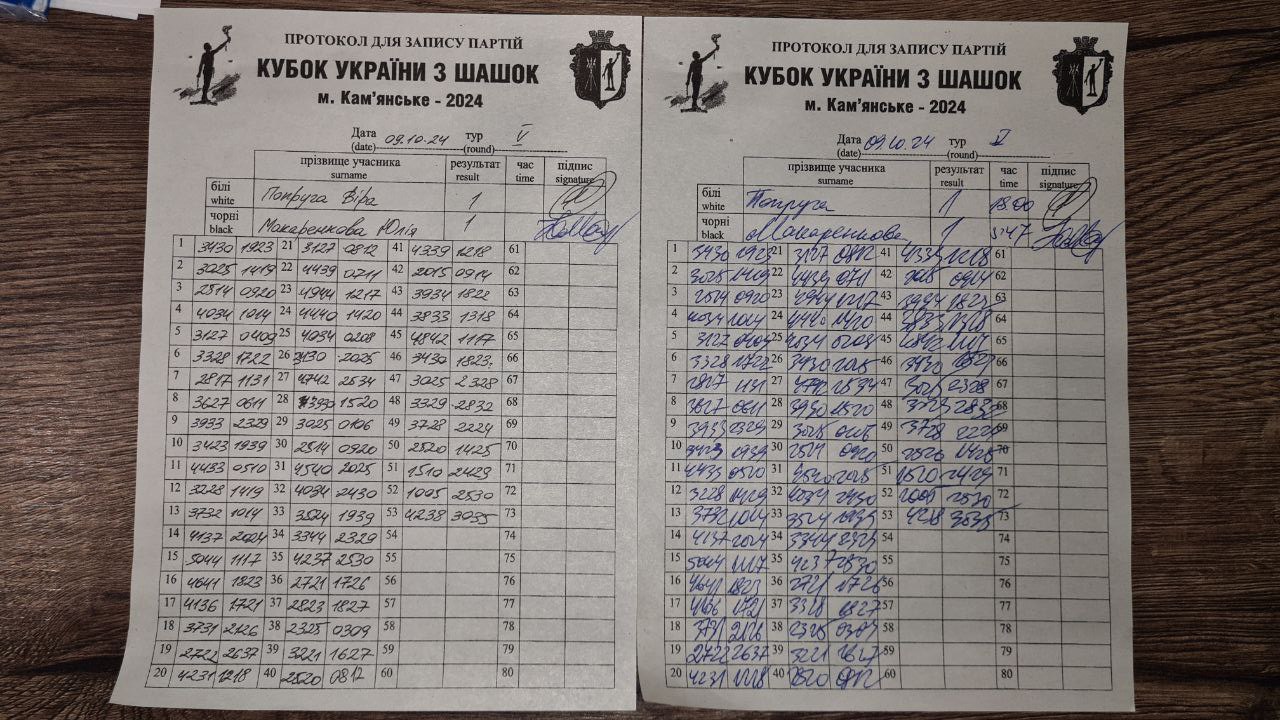 ПРОТОКОЛ ДЛЯ ЗАПИСУ ПАРТІЙ
КУБОК УКРАЇНИ З ШАШОК
м. Кам'янське - 2024
Дата 09.10.24 тур V
(date) (round)
прізвище учасника результат час підпис
surname result time signature
білі Попруга Віра 1
white
чорні Макаренкова Юлія 1
black
1 3430 1923 21 3127 0812 41 4339 1218 61
2 3025 1419 22 4439 0711 42 2015 0914 62
3 2514 0920 23 4944 1217 43 3934 1822 63
4 4034 1014 24 4440 1420 44 3833 1318 64
5 3127 0409 25 4034 0208 45 4842 1117 65
6 3328 1722 26 3430 2025 46 3430 1823 66
7 2817 1131 27 4742 2534 47 3025 2328 67
8 3627 0611 28 3930 1520 48 3329 2832 68
9 3933 2329 29 3025 0106 49 3728 2224 69
10 3423 1939 30 2514 0920 50 2520 1425 70
11 4433 0510 31 4540 2025 51 1510 2423 71
12 3228 1419 32 4034 2430 52 1005 2530 72
13 3732 1014 33 3524 1939 53 4238 3035 73
14 4137 2024 34 3344 2329 54 74
15 5044 1117 35 4237 2530 55 75
16 4641 1823 36 2721 1726 56 76
17 4136 1721 37 2823 1827 57 77
18 3731 2126 38 2325 0309 58 78
19 2722 2637 39 3221 1627 59 79
20 4231 1218 40 2520 0812 60 80
ПРОТОКОЛ ДЛЯ ЗАПИСУ ПАРТІЙ
КУБОК УКРАЇНИ З ШАШОК
м. Кам'янське - 2024
Дата 09.10.24 тур V
(date) (round)
прізвище учасника результат час підпис
surname result time signature
білі Попруга 1 18.00
white
чорні Макаренкова 1 5:47
black
1 3430 1923 21 3127 0812 41 4339 1218 61
2 3025 1419 22 4439 0711 42 2015 0914 62
3 2514 0920 23 4944 1217 43 3934 63
4 4034 1014 24 4440 1420 44 3833 1318 64
5 3127 0409 25 4034 0208 45 4842 1117 65
6 3328 1722 26 3430 2025 46 3430 66
7 2817 1131 27 4742 2534 47 3025 2328 67
8 3627 0611 28 3930 1520 48 68
9 3933 2329 29 3025 0106 49 3728 69
10 3423 30 2514 0920 50 2520 1425 70
11 4433 0510 31 4540 2025 51 71
12 3228 1419 32 4034 2430 52 2530 72
13 3732 1014 33 3524 1939 53 3035 73
14 4137 2024 34 3344 2329 54 74
15 5044 1117 35 4237 2530 55 75
16 4641 1823 36 2721 1726 56 76
17 4136 1721 37 3328 1827 57 77
18 3731 2126 38 2325 0309 58 78
19 2722 2637 39 3221 1627 59 79
20 4231 1218 40 2520 0812 60 80